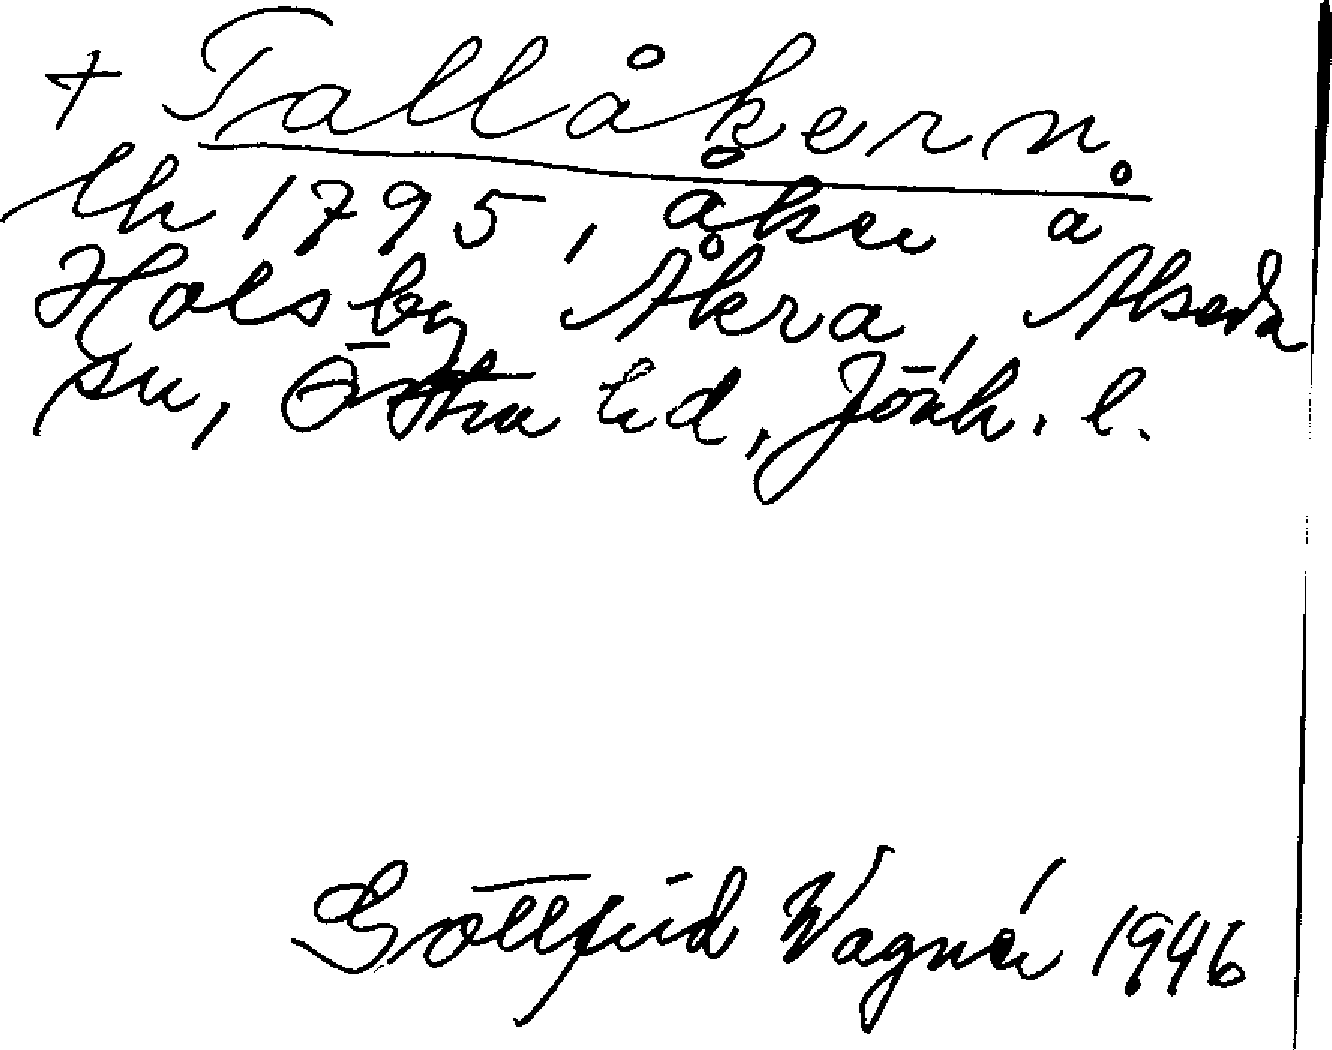 + Tallåkern.
Uh 1795, åker å
Holsby Åkra, Alseda
sn, Östra hd, Jönk. l.
Gottfrid Wagnér 1946